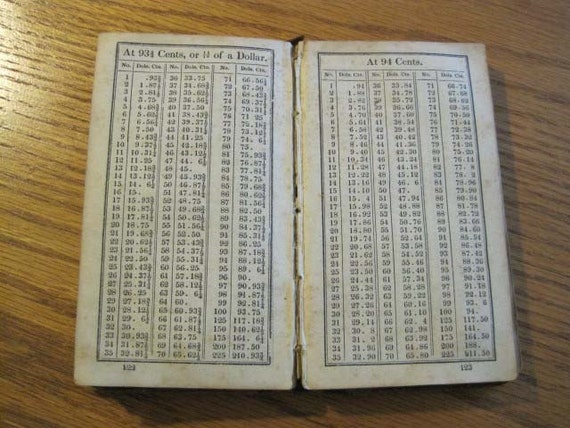 At 93¾ Cents, or 15/16 of a Dollar.
No. Dols. Cts. No. Dols. Cts. No. Dols. Cts.
1 .93¾ 36 33.75 71 66.56¼
2 1.87½ 37 34.68¾ 72 67.50
3 2.81¼ 38 35.62½ 73 68.43¾
4 3.75 39 36.56¼ 74 69.37½
5 4.68¾ 40 37.50 75 70.31¼
6 5.62½ 41 38.43¾ 76 71 25
7 6.56¼ 42 39.37½ 77 72.18¾
8 7.50 43 40.31¼ 78 73.12½
9 8.43¾ 44 41.25 79 74. 6¼
10 9.37½ 45 42.18¾ 80 75.
11 10.31¼ 46 43.12½ 81 75.93¾
12 11.25 47 44. 6¼ 82 76.87½
13 12.18¾ 48 45. 83 77.81¼
14 13.12½ 49 45.93¾ 84 78.75
15 14. 6¼ 50 46.87½ 85 79.68¾
16 15. 51 47.81¼ 86 80.62½
17 15.93¾ 52 48.75 87 81.56¼
18 16.87½ 53 49.68¾ 88 82.50
19 17.81¼ 54 50.62½ 89 83.43¾
20 18.75 55 51.56¼ 90 84.37½
21 19.68¾ 56 52.50 91 85.31¼
22 20.62½ 57 53.43¾ 92 86.25
23 21.56¼ 58 54.37½ 93 87.18¾
24 22.50 59 55.31¼ 94 88.12½
25 23.43¾ 60 56.25 95 89. 6¼
26 24.37½ 61 57.18¾ 96 90.
27 25.31¼ 62 58.12½ 97 90.93¾
28 26.25 63 59. 6¼ 98 91.87½
29 27.18¾ 64 60. 99 92.81¼
30 28.12½ 65 60.93¾ 100 93.75
31 29. 6¼ 66 61.87½ 125 117.18¾
32 30. 67 62.81¼ 150 140.62½
33 30.93¾ 68 63.75 175 164. 6¼
34 31.87½ 69 64.68¾ 200 187.50
35 32.81¼ 70 65.62½ 225 210.93¾
122
At 94 Cents.
No. Dols. Cts. No. Dols. Cts. No. Dols. Cts.
1 .94 36 33.84 71 66.74
2 1.88 37 34.78 72 67.68
3 2.82 38 35.72 73 68.62
4 3.76 39 36.66 74 69.56
5 4.70 40 37.60 75 70.50
6 5.64 41 38.54 76 71.44
7 6.58 42 39.48 77 72.38
8 7.52 43 40.42 78 73.32
9 8.46 44 41.36 79 74.26
10 9.40 45 42.30 80 75.20
11 10.34 46 43.24 81 76.14
12 11.28 47 44.18 82 77. 8
13 12.22 48 45.12 83 78. 2
14 13.16 49 46. 6 84 78.96
15 14.10 50 47. 85 79.90
16 15. 4 51 47.94 86 80.84
17 15.98 52 48.88 87 81.78
18 16.92 53 49.82 88 82.72
19 17.86 54 50.76 89 83.66
20 18.80 55 51.70 90 84.60
21 19.74 56 52.64 91 85.54
22 20.68 57 53.58 92 86.48
23 21.62 58 54.52 93 87.42
24 22.56 59 55.46 94 88.36
25 23.50 60 56.40 95 89.30
26 24.44 61 57.34 96 90.24
27 25.38 62 58.28 97 91.18
28 26.32 63 59.22 98 92.12
29 27.26 64 60.16 99 93. 6
30 28.20 65 61.10 100 94.
31 29.14 66 62. 4 125 117.50
32 30. 8 67 62.98 150 141.
33 31. 2 68 63.92 175 164.50
34 31.96 69 64.86 200 188.
35 32.90 70 65.80 225 211.50
123